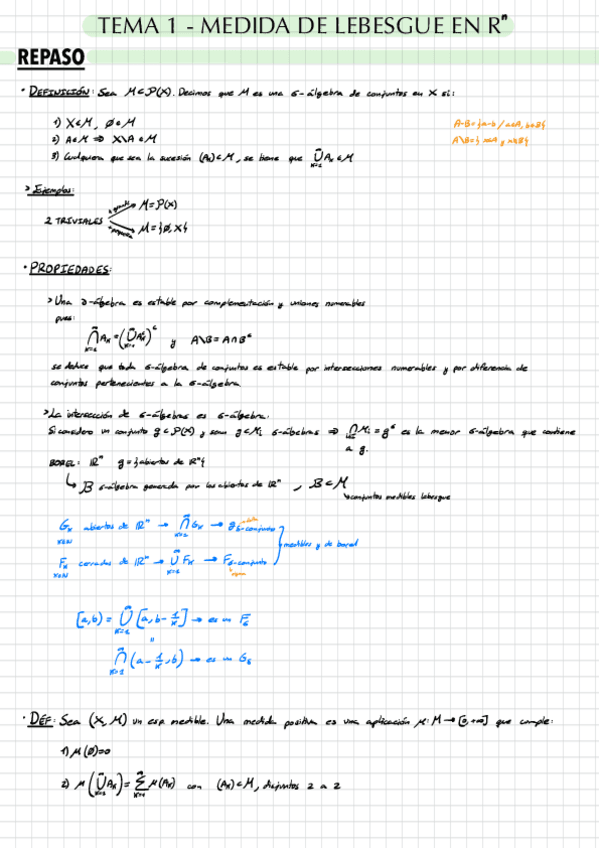 TEMA 1 - MEDIDA DE LEBESGUE EN Rⁿ
REPASO
· DEFINICIÓN: Sea M⊂P(X). Decimos que M es una σ-álgebra de conjuntos en X si:
1) X∈M, ∅∈M
A-B={a-b / a∈A, b∈B}
2) A∈M ⇒ X\A∈M
A\B={x∈A, x∉B}
3) Cualquiera que sea la sucesión (Aₖ)⊂M, se tiene que ∞⋃ₖ₌₁ Aₖ∈M
> Ejemplos:
2 TRIVIALES
+ grande M=P(X)
+ pequeña M={∅,X}
· PROPIEDADES:
> Una σ-álgebra es estable por complementación y uniones numerables
pues:
∞⋂ₖ₌₁ Aₖ=(∞⋃ₖ₌₁ Aₖᶜ)ᶜ y A\B=A∩Bᶜ
se deduce que toda σ-álgebra de conjuntos es estable por intersecciones numerables y por diferencia de
conjuntos pertenecientes a la σ-álgebra
> La intersección de σ-álgebras es σ-álgebra.
Si considero un conjunto g⊂P(X) y sean g⊂Mᵢ σ-álgebras ⇒ ⋂Mᵢ = gᶲ es la menor σ-álgebra que contiene
a g.
BOREL: Rⁿ g={abiertos de Rⁿ}
↳ B σ-álgebra generada por los abiertos de Rⁿ, B⊂M
conjuntos medibles lebesgue
Gₖ abiertos de Rⁿ → ∞⋂ₖ₌₁ Gₖ → g_δ-conjunto
K∈N
medibles y de borel
Fₖ cerrados de Rⁿ → ∞⋃ₖ₌₁ Fₖ → F_σ-conjunto
K∈N
[a,b) = ∞⋃ₖ₌₁ [a, b-1/k] → es un F_σ
=
∞⋂ₖ₌₁ (a-1/k, b) → es un G_δ
· DEF: Sea (X,M) un esp. medible. Una medida positiva es una aplicación μ:M→[0,+∞] que cumple:
1) μ(∅)=0
2) μ(∞⋃ₖ₌₁ Aₖ)=∞∑ₖ₌₁ μ(Aₖ) con (Aₖ)⊂M, disjuntos 2 a 2